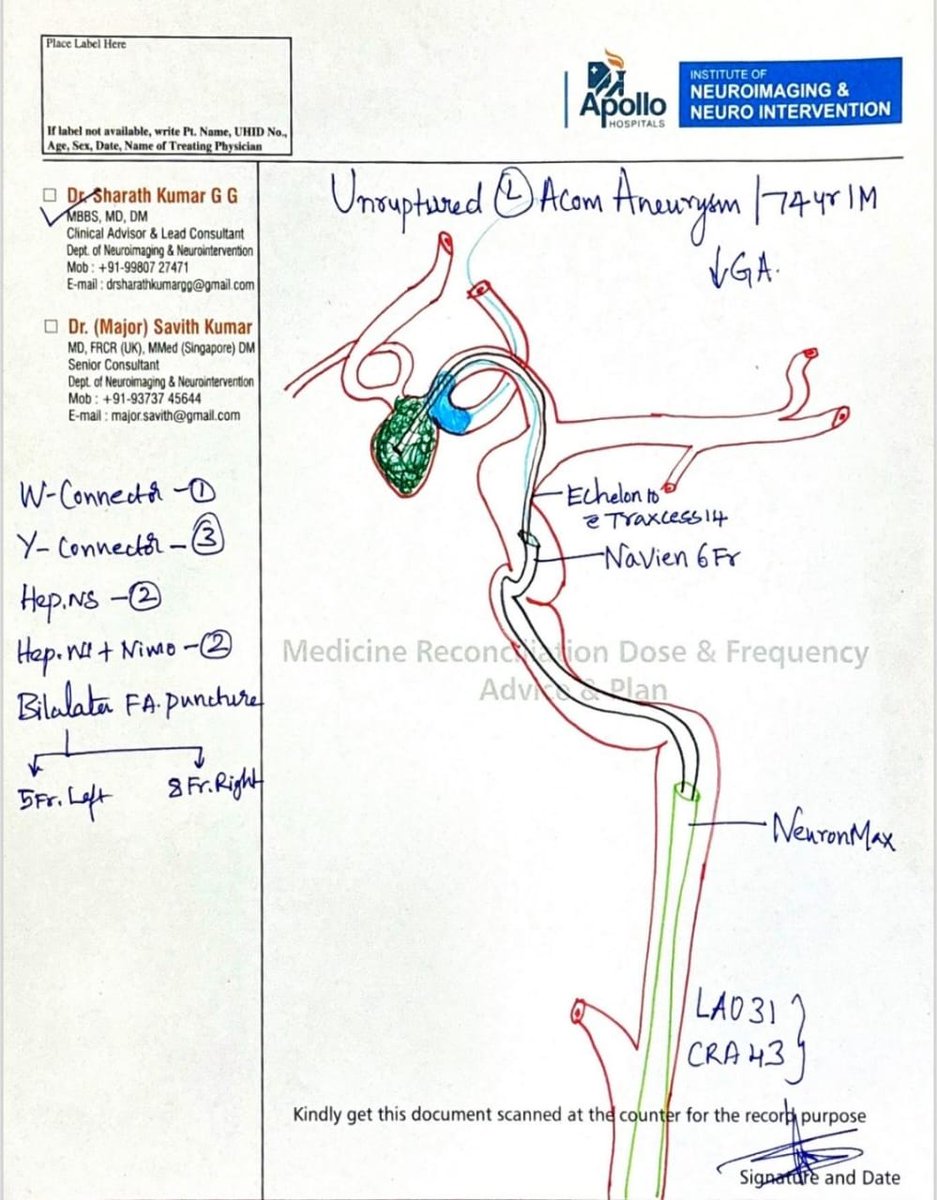 Place Label Here
If label not available, write Pt. Name, UHID No.,
Age, Sex, Date, Name of Treating Physician
Apollo
HOSPITALS
INSTITUTE OF
NEUROIMAGING &
NEURO INTERVENTION
Dr. Sharath Kumar G G
MBBS, MD, DM
Clinical Advisor & Lead Consultant
Dept. of Neuroimaging & Neurointervention
Mob : +91-99807 27471
E-mail : drsharathkumargg@gmail.com
Dr. (Major) Savith Kumar
MD, FRCR (UK), MMed (Singapore) DM
Senior Consultant
Dept. of Neuroimaging & Neurointervention
Mob : +91-93737 45644
E-mail : major.savith@gmail.com
W-Connector - 1
Y-Connector - 3
Hep.NS - 2
Hep.NS + Nimo - 2
Bilalater FA. puncture
5Fr. Left 8Fr. Right
Unruptured L Acom Aneurysm / 74yr / M
↓GA.
Echelon 10
c̄ Traxcess14
Navien 6Fr
Medicine Reconciliation Dose & Frequency
Advice & Plan
NeuronMax
LAO 31
CRA 43
Kindly get this document scanned at the counter for the record purpose
Signature and Date